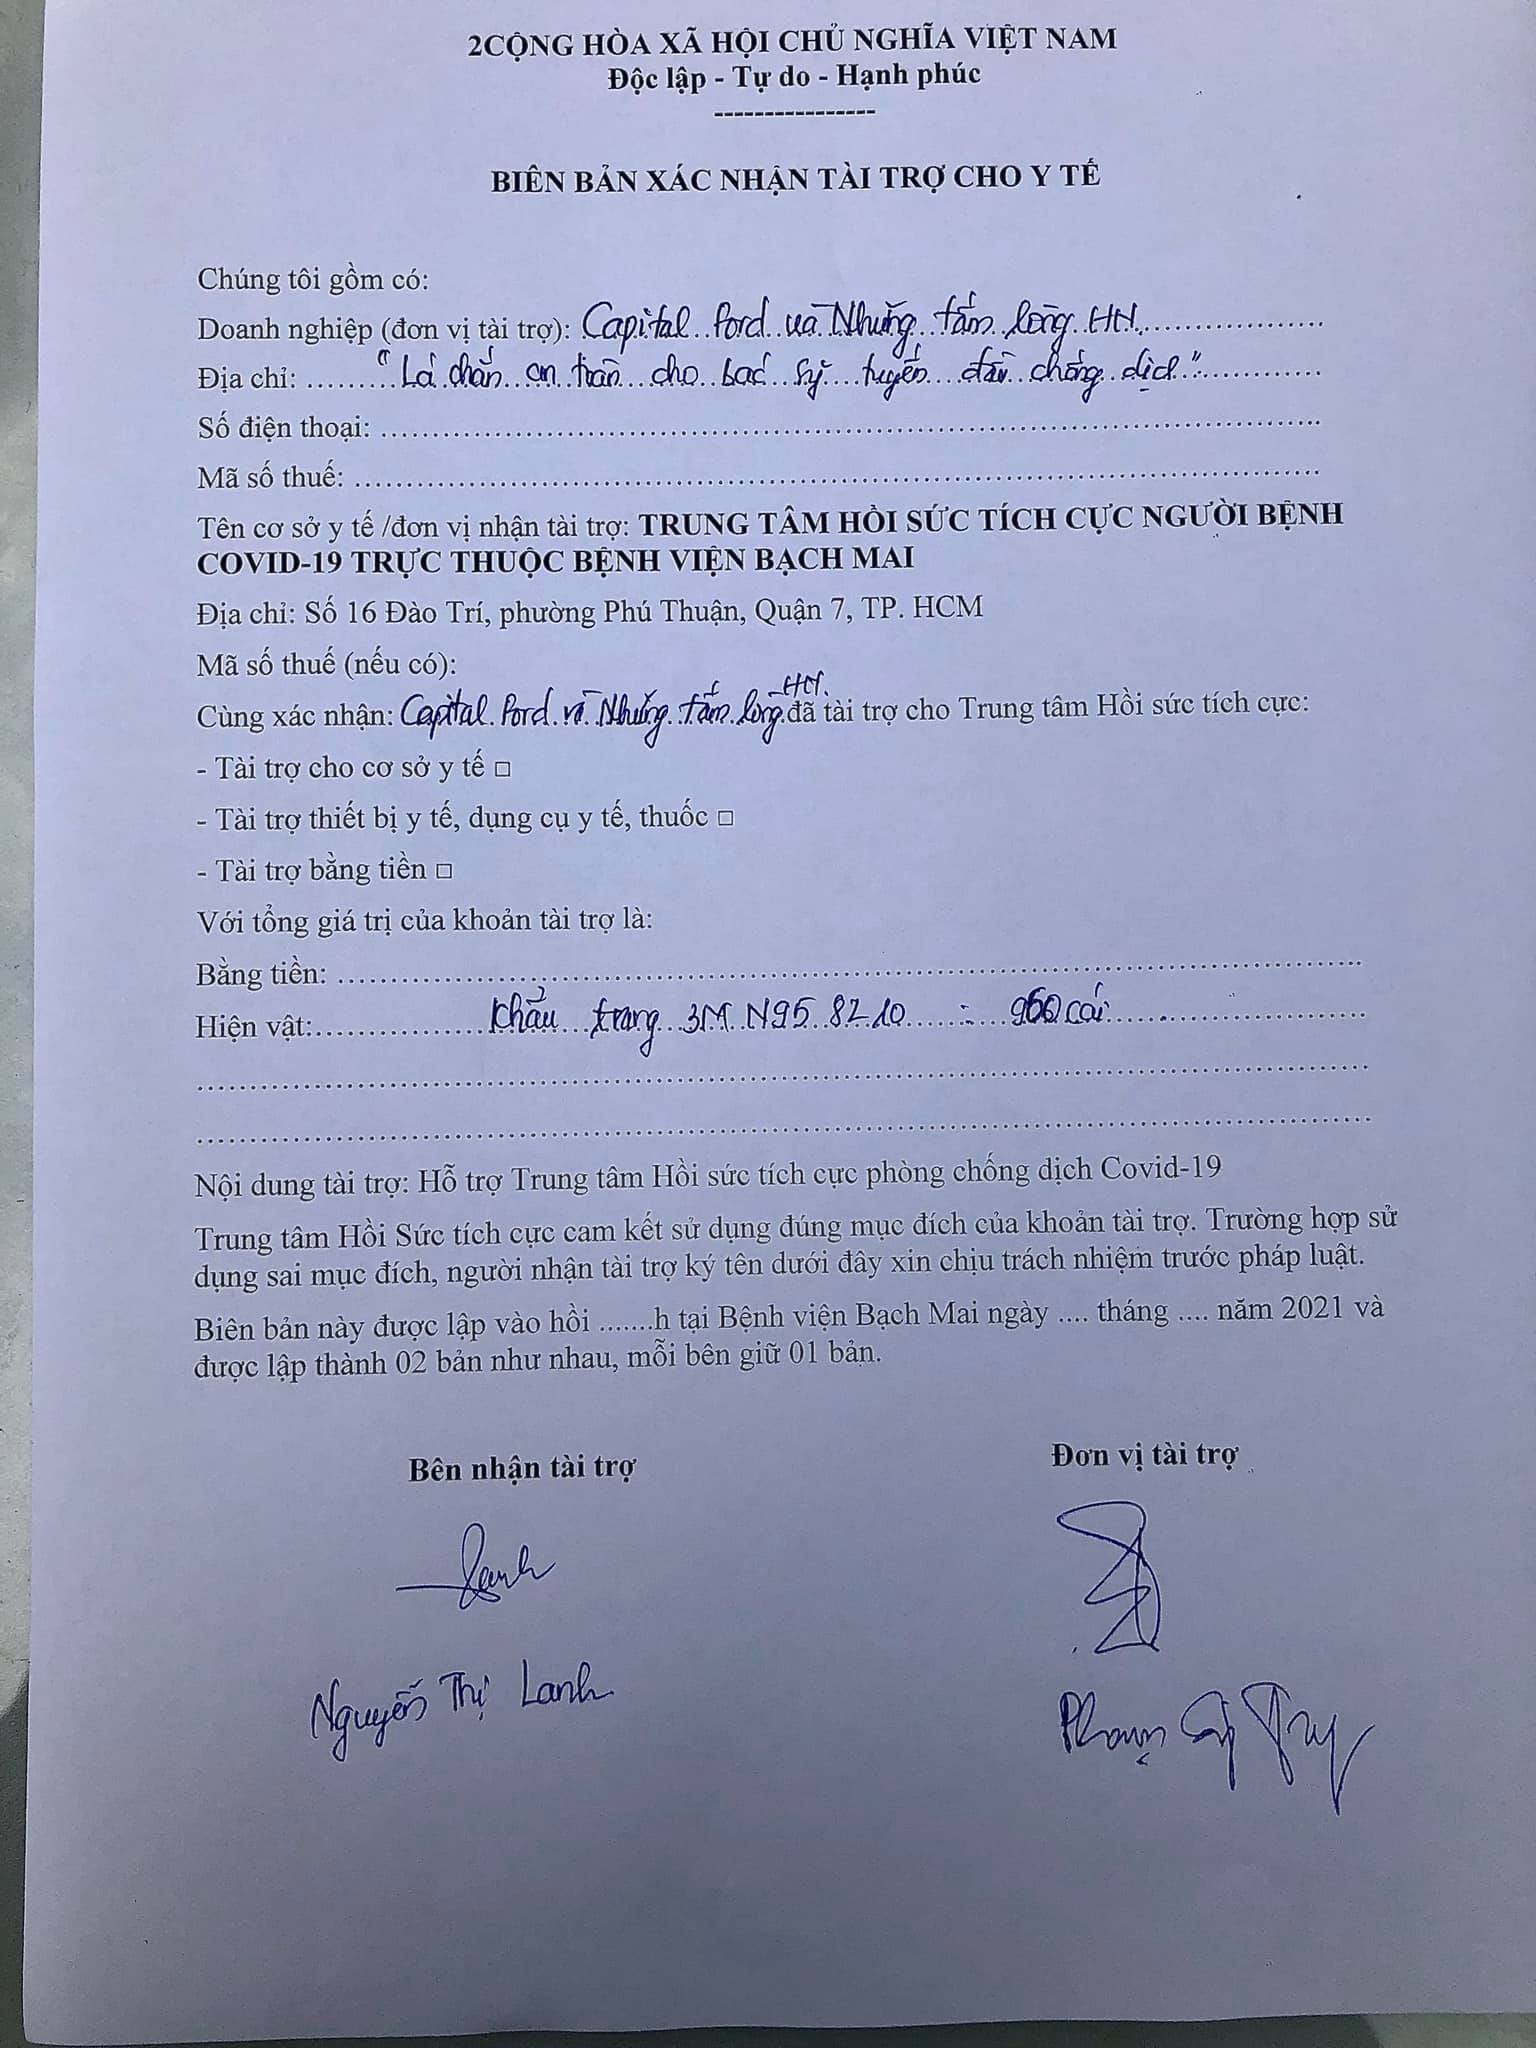 2CỘNG HÒA XÃ HỘI CHỦ NGHĨA VIỆT NAM
Độc lập - Tự do - Hạnh phúc
----------------
BIÊN BẢN XÁC NHẬN TÀI TRỢ CHO Y TẾ
Chúng tôi gồm có:
Doanh nghiệp (đơn vị tài trợ): Capital Ford và Những tấm lòng HN
Địa chỉ: "Lá chắn an toàn cho bác sỹ tuyến đầu chống dịch"
Số điện thoại:
Mã số thuế:
Tên cơ sở y tế /đơn vị nhận tài trợ: TRUNG TÂM HỒI SỨC TÍCH CỰC NGƯỜI BỆNH
COVID-19 TRỰC THUỘC BỆNH VIỆN BẠCH MAI
Địa chỉ: Số 16 Đào Trí, phường Phú Thuận, Quận 7, TP. HCM
Mã số thuế (nếu có):
Cùng xác nhận: Capital Ford và Những tấm lòng HN. đã tài trợ cho Trung tâm Hồi sức tích cực:
- Tài trợ cho cơ sở y tế □
- Tài trợ thiết bị y tế, dụng cụ y tế, thuốc □
- Tài trợ bằng tiền □
Với tổng giá trị của khoản tài trợ là:
Bằng tiền:
Hiện vật: Khẩu trang 3M N95 8210 : 960 cái
Nội dung tài trợ: Hỗ trợ Trung tâm Hồi sức tích cực phòng chống dịch Covid-19
Trung tâm Hồi Sức tích cực cam kết sử dụng đúng mục đích của khoản tài trợ. Trường hợp sử
dụng sai mục đích, người nhận tài trợ ký tên dưới đây xin chịu trách nhiệm trước pháp luật.
Biên bản này được lập vào hồi .......h tại Bệnh viện Bạch Mai ngày .... tháng .... năm 2021 và
được lập thành 02 bản như nhau, mỗi bên giữ 01 bản.
Bên nhận tài trợ
Đơn vị tài trợ
Lanh
Nguyễn Thị Lanh
Phạm